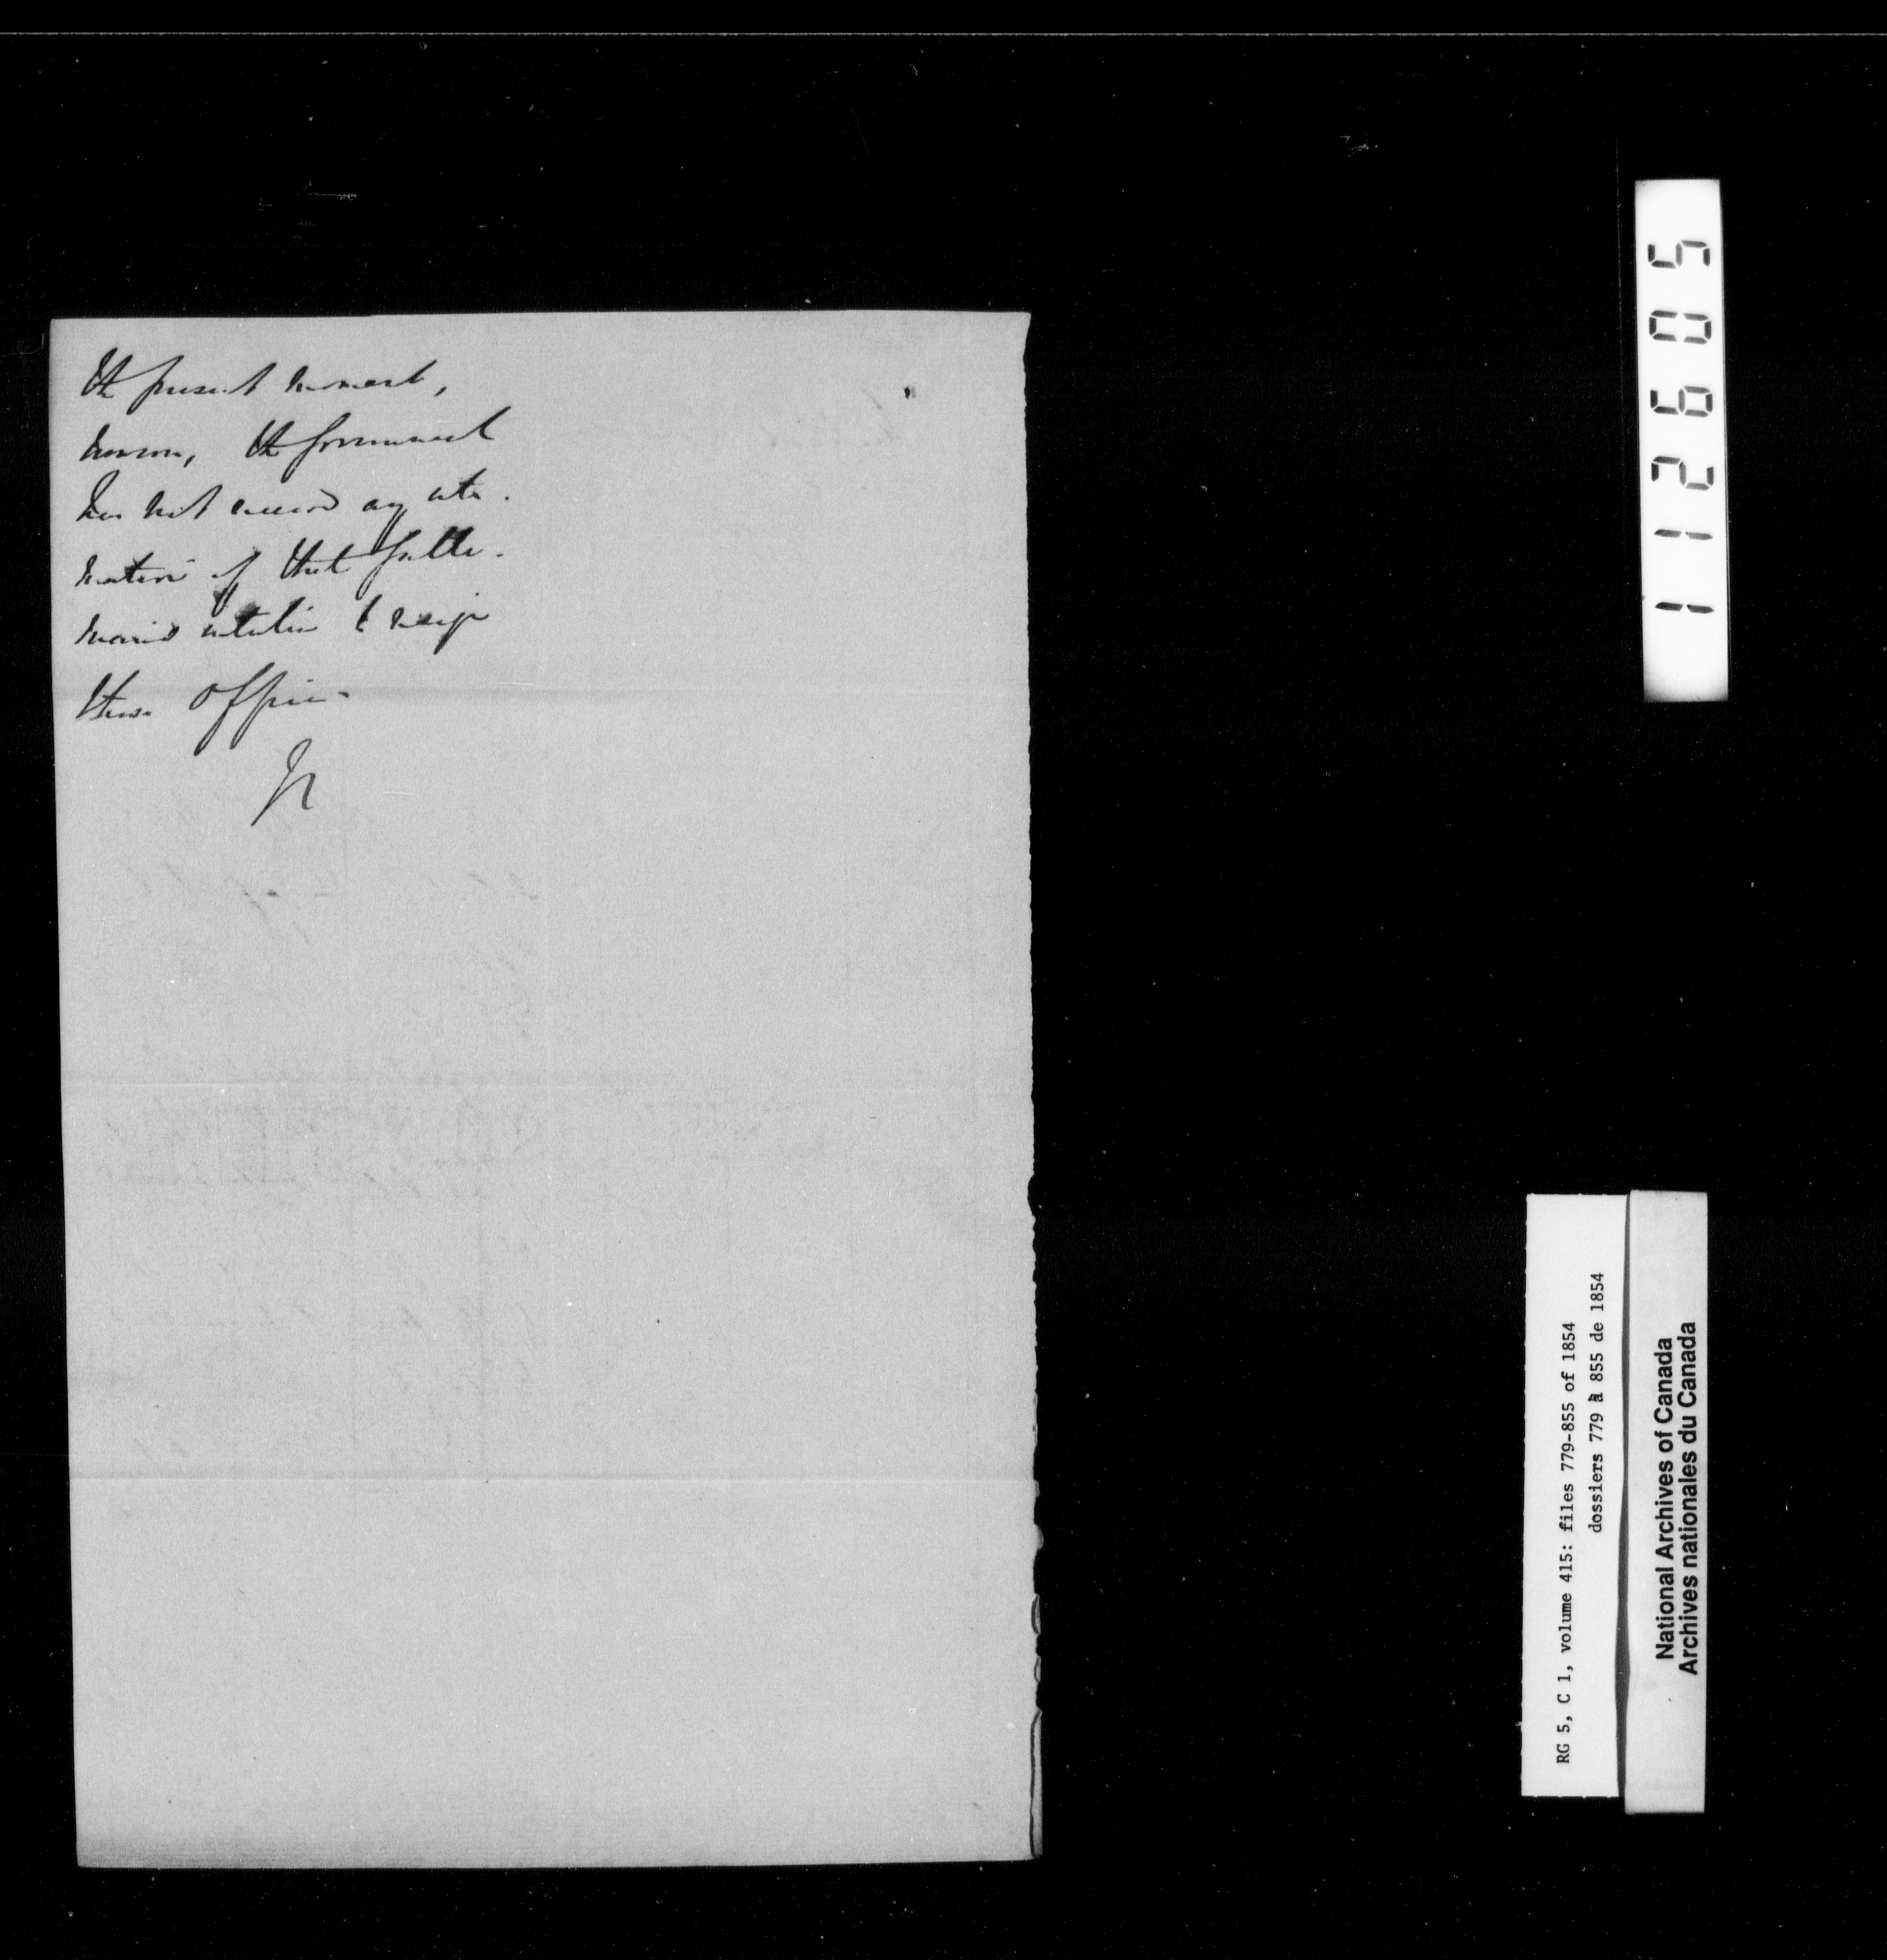 the present moment,
however, the Government
has not received any inti-
mation of that Gentle-
man's intention to resign
those Offices
112605
RG 5, C 1, volume 415: files 779-855 of 1854
dossiers 779 à 855 de 1854
National Archives of Canada
Archives nationales du Canada